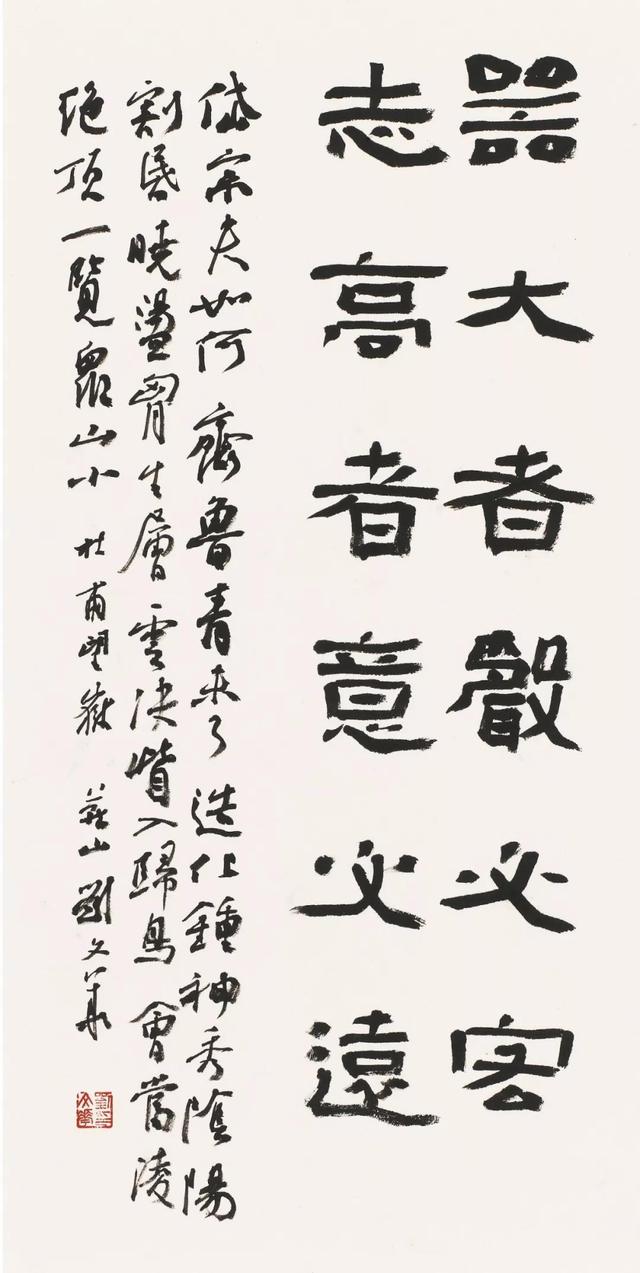 器大者聲必宏
志高者意必遠
岱宗夫如何齊魯青未了造化鍾神秀陰陽
割昏曉盪胷生層雲決眥入歸鳥會當凌
絶頂一覽眾山小 杜甫望嶽 燕山劉文華